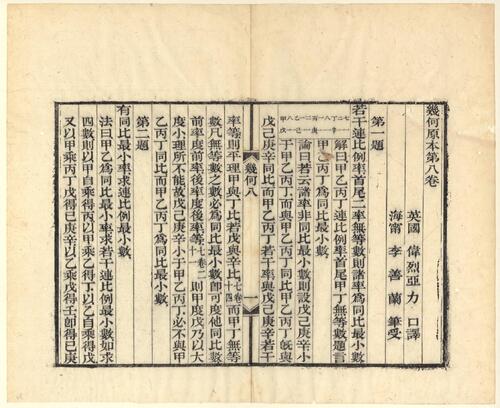 幾何原本第八卷
英國 偉烈亞力 口譯
海甯 李善蘭 筆受
第一題
若干連比例率首尾二率無等數則諸率為同比最小數
解曰甲乙丙丁連比例率首尾甲丁無等數題言
甲乙丙丁為同比最小數
論曰若云諸率非同比最小數則設戊己庚辛小
于甲乙丙丁而與甲乙丙丁同比甲乙丙丁旣與
戊己庚辛同比而甲乙丙丁若干率與戊己庚辛若干
幾何八
一
率等則平理甲與丁比若戊與辛比七卷十四而甲丁無等
數凡無等數之數必為同比最小數卽可度他同比數
前率度前率後率度後率等則甲度戊乃以大
度小理所不能故戊己庚辛小于甲乙丙丁必不與甲
乙丙丁同比而甲乙丙丁為同比最小數
第二題
有同比最小率求連比例最小數
法曰甲乙為同比最小率求若干連比例最小數如求
四數則以甲自乘得丙以甲乘乙得丁以乙自乘得戊
又以甲乘丙丁戊得己庚辛以乙乘戊得壬卽得己庚